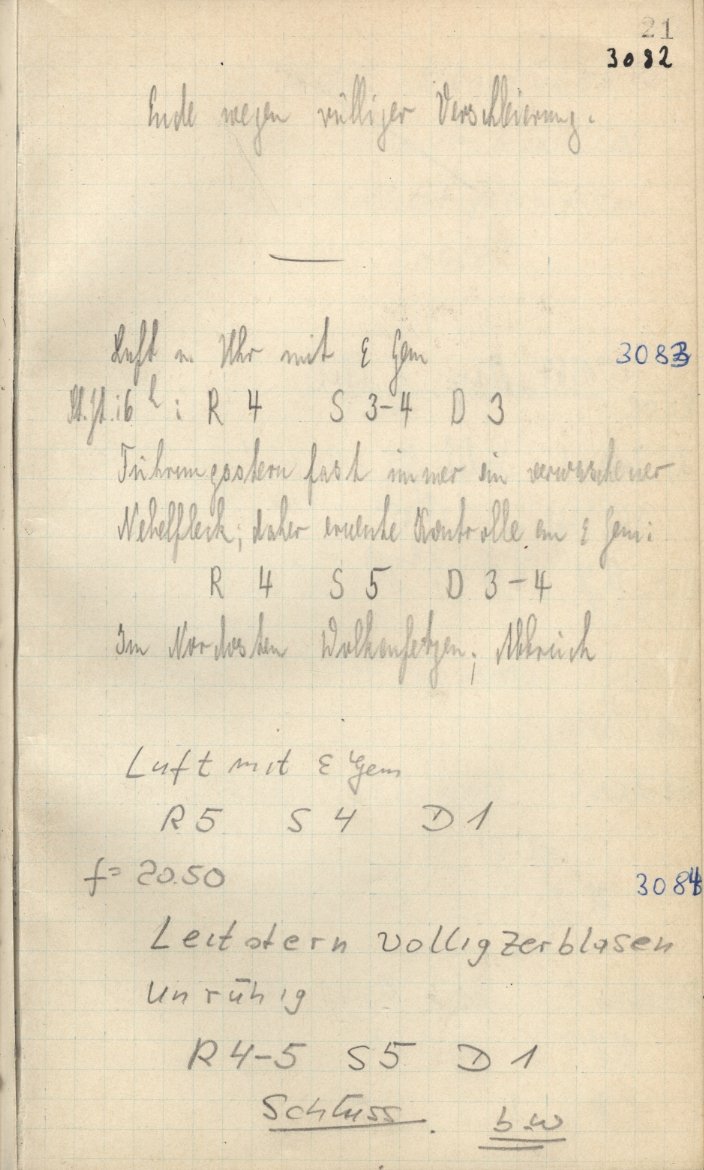 21
3082
Ende wegen völliger Verschleierung.
Luft u. Uhr mit ε Gem
3083
16 h : R 4 S 3-4 D 3
Führungsstern fast immer ein verwaschener
Nebelfleck; daher erneute Kontrolle an ε Gem:
R 4 S 5 D 3-4
Im Nordosten Wolkenfetzen; Abbruch
Luft mit ε Gem
R 5 S 4 D 1
f= 20.50
3084
Leitstern völlig zerblasen
unruhig
R 4-5 S 5 D 1
Schluss. b.w